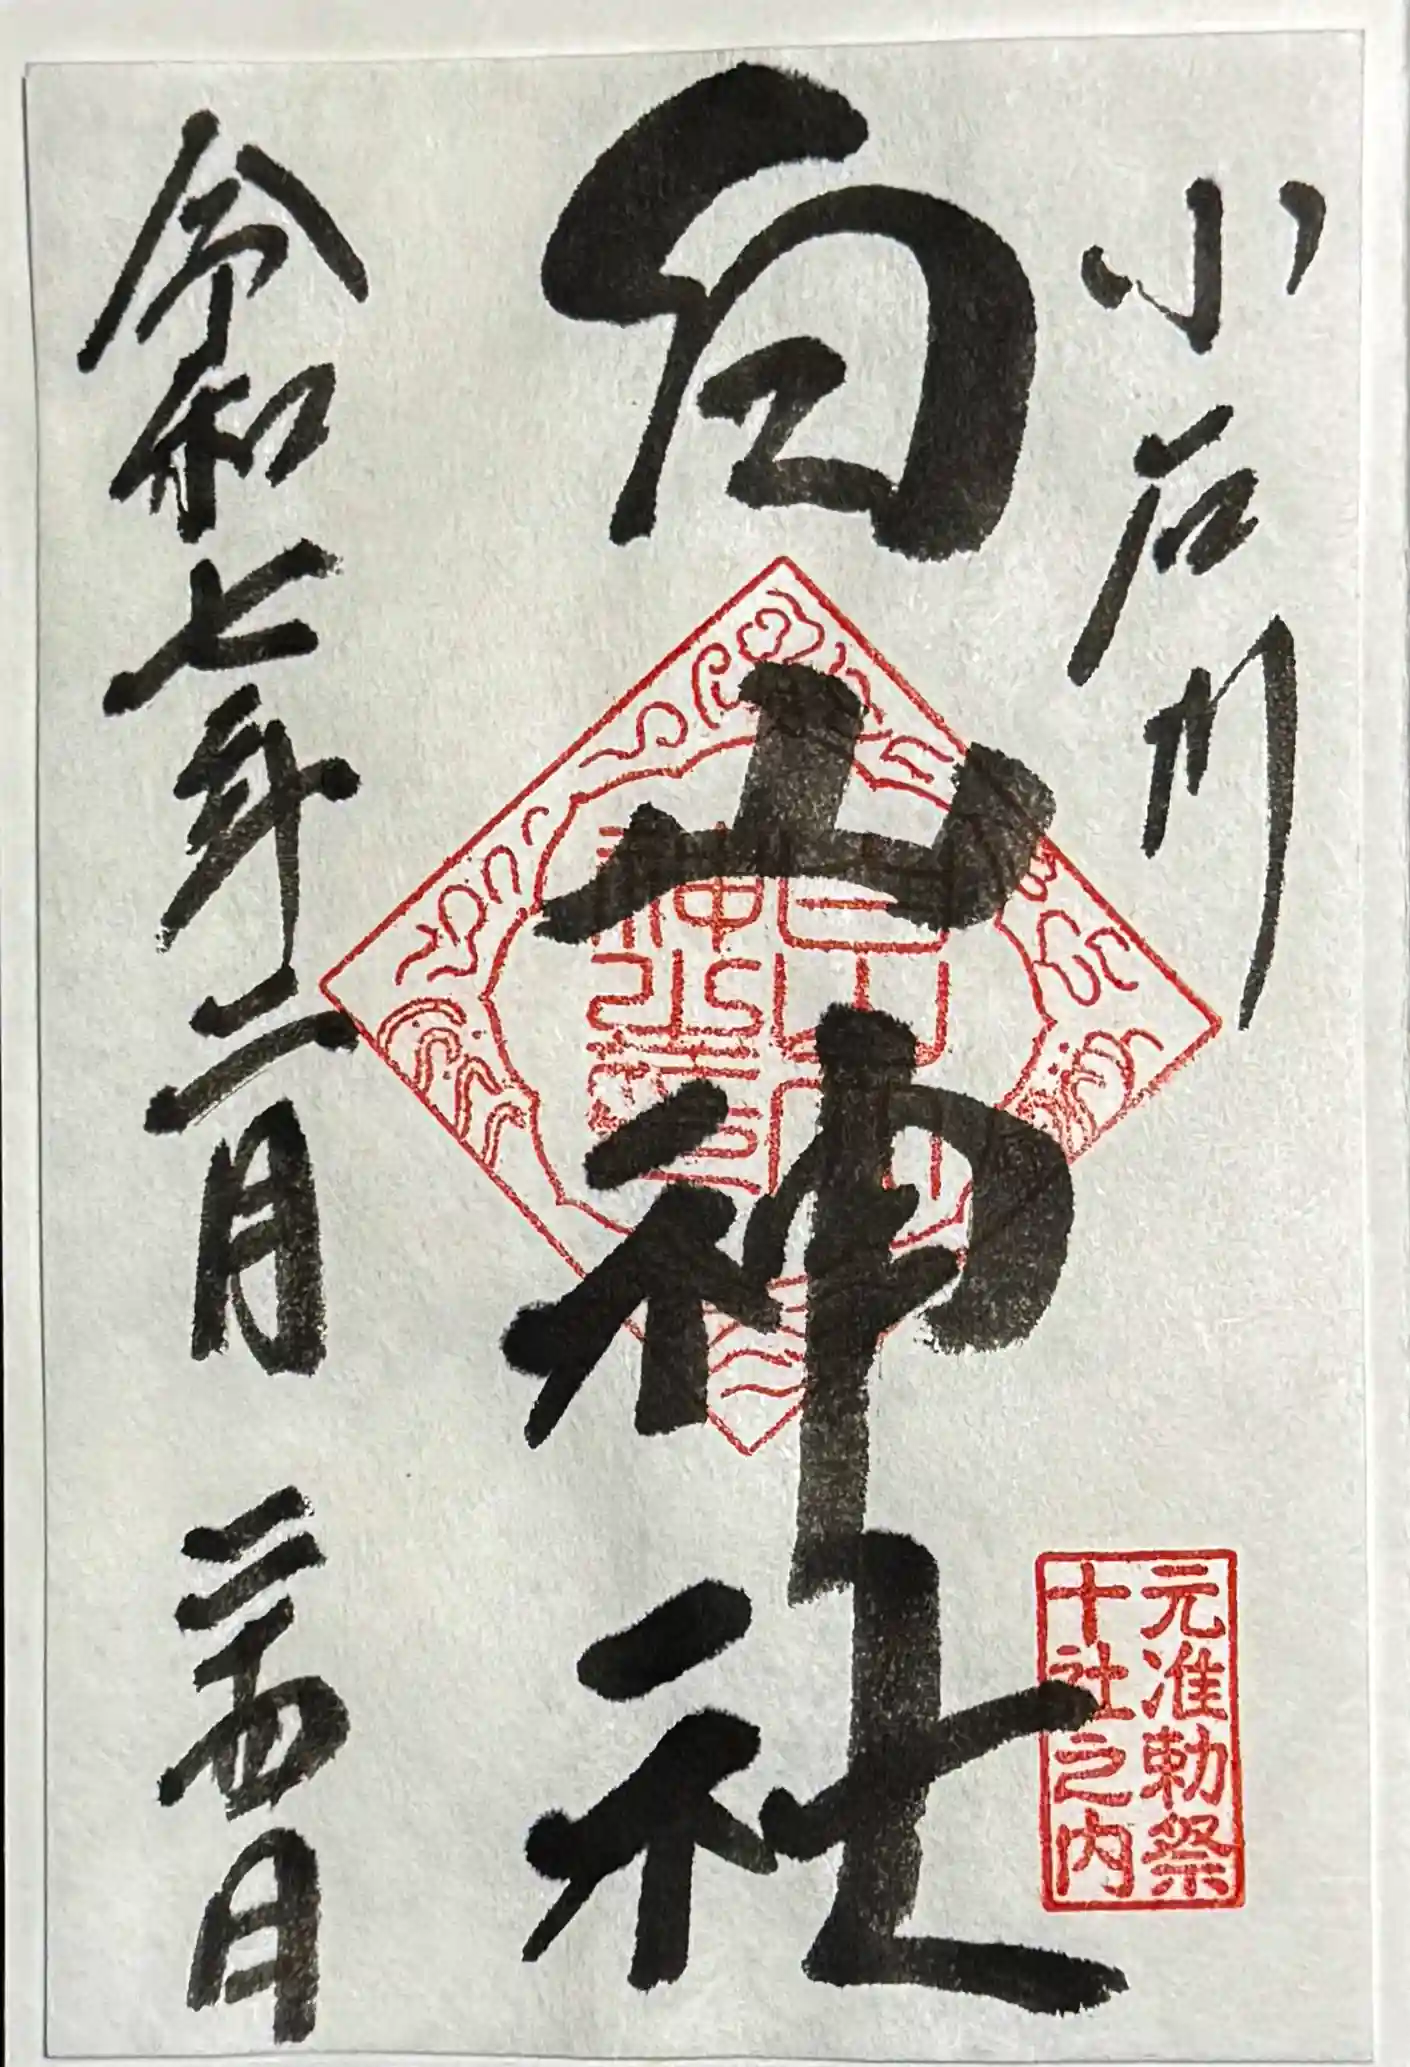 小石川
白山神社
元准勅祭
十社之内
令和七年二月二十四日